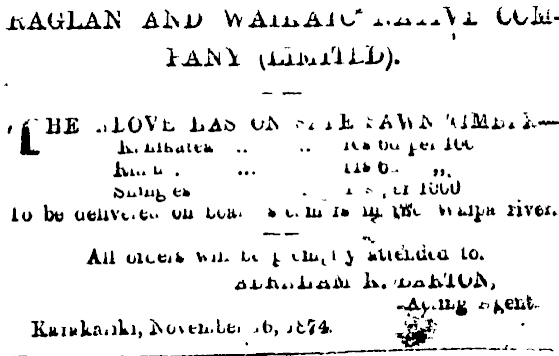 RAGLAN AND WAIKATO NATIVE COM-
PANY (LIMITED).
THE ABOVE HAS ON SALE SAWN TIMBER—
Kahikatea .. .. per 100
... „
Shingles 1000
To be delivered on board steamers in the Waipa river.
All orders will be promptly attended to.
ABRAHAM K. BARTON,
Acting Agent.
Karakariki, November 16, 1874.